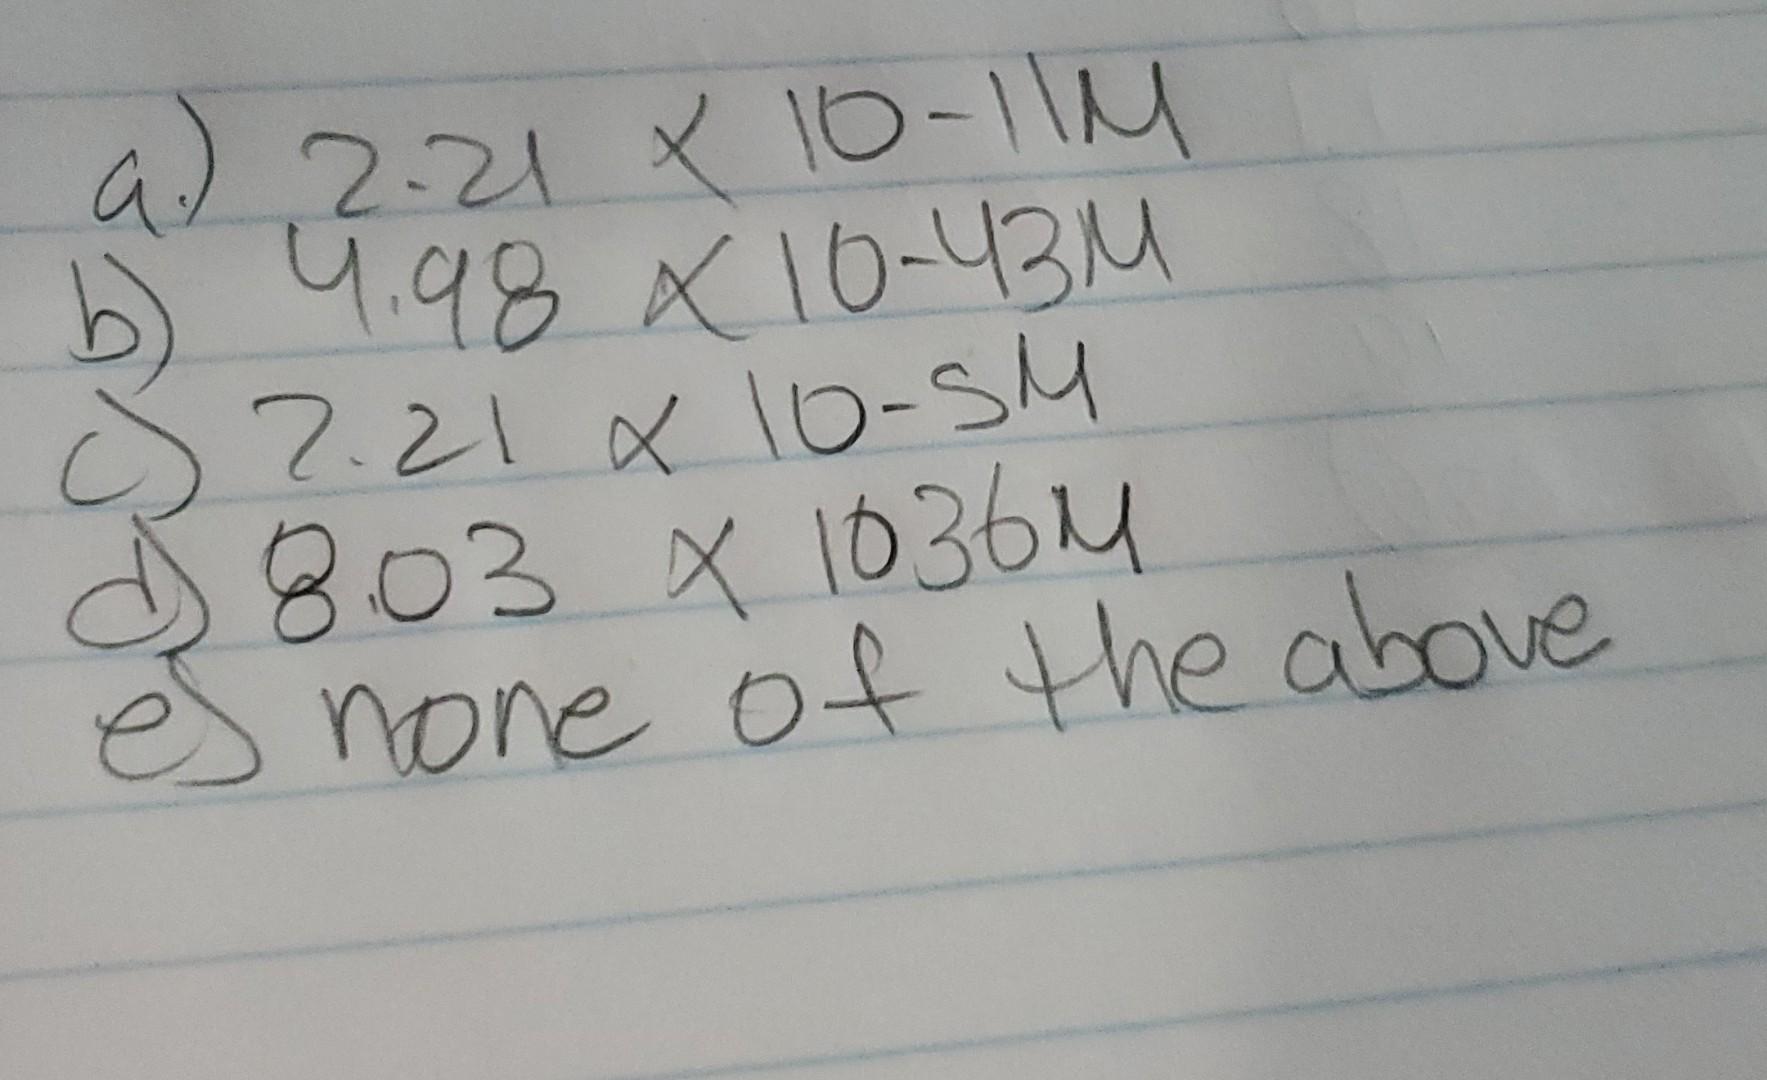 a.) 2.21 x 10-11M
b) 4.98 x 10-43M
c) 2.21 x 10-5M
d) 8.03 x 1036M
e) none of the above